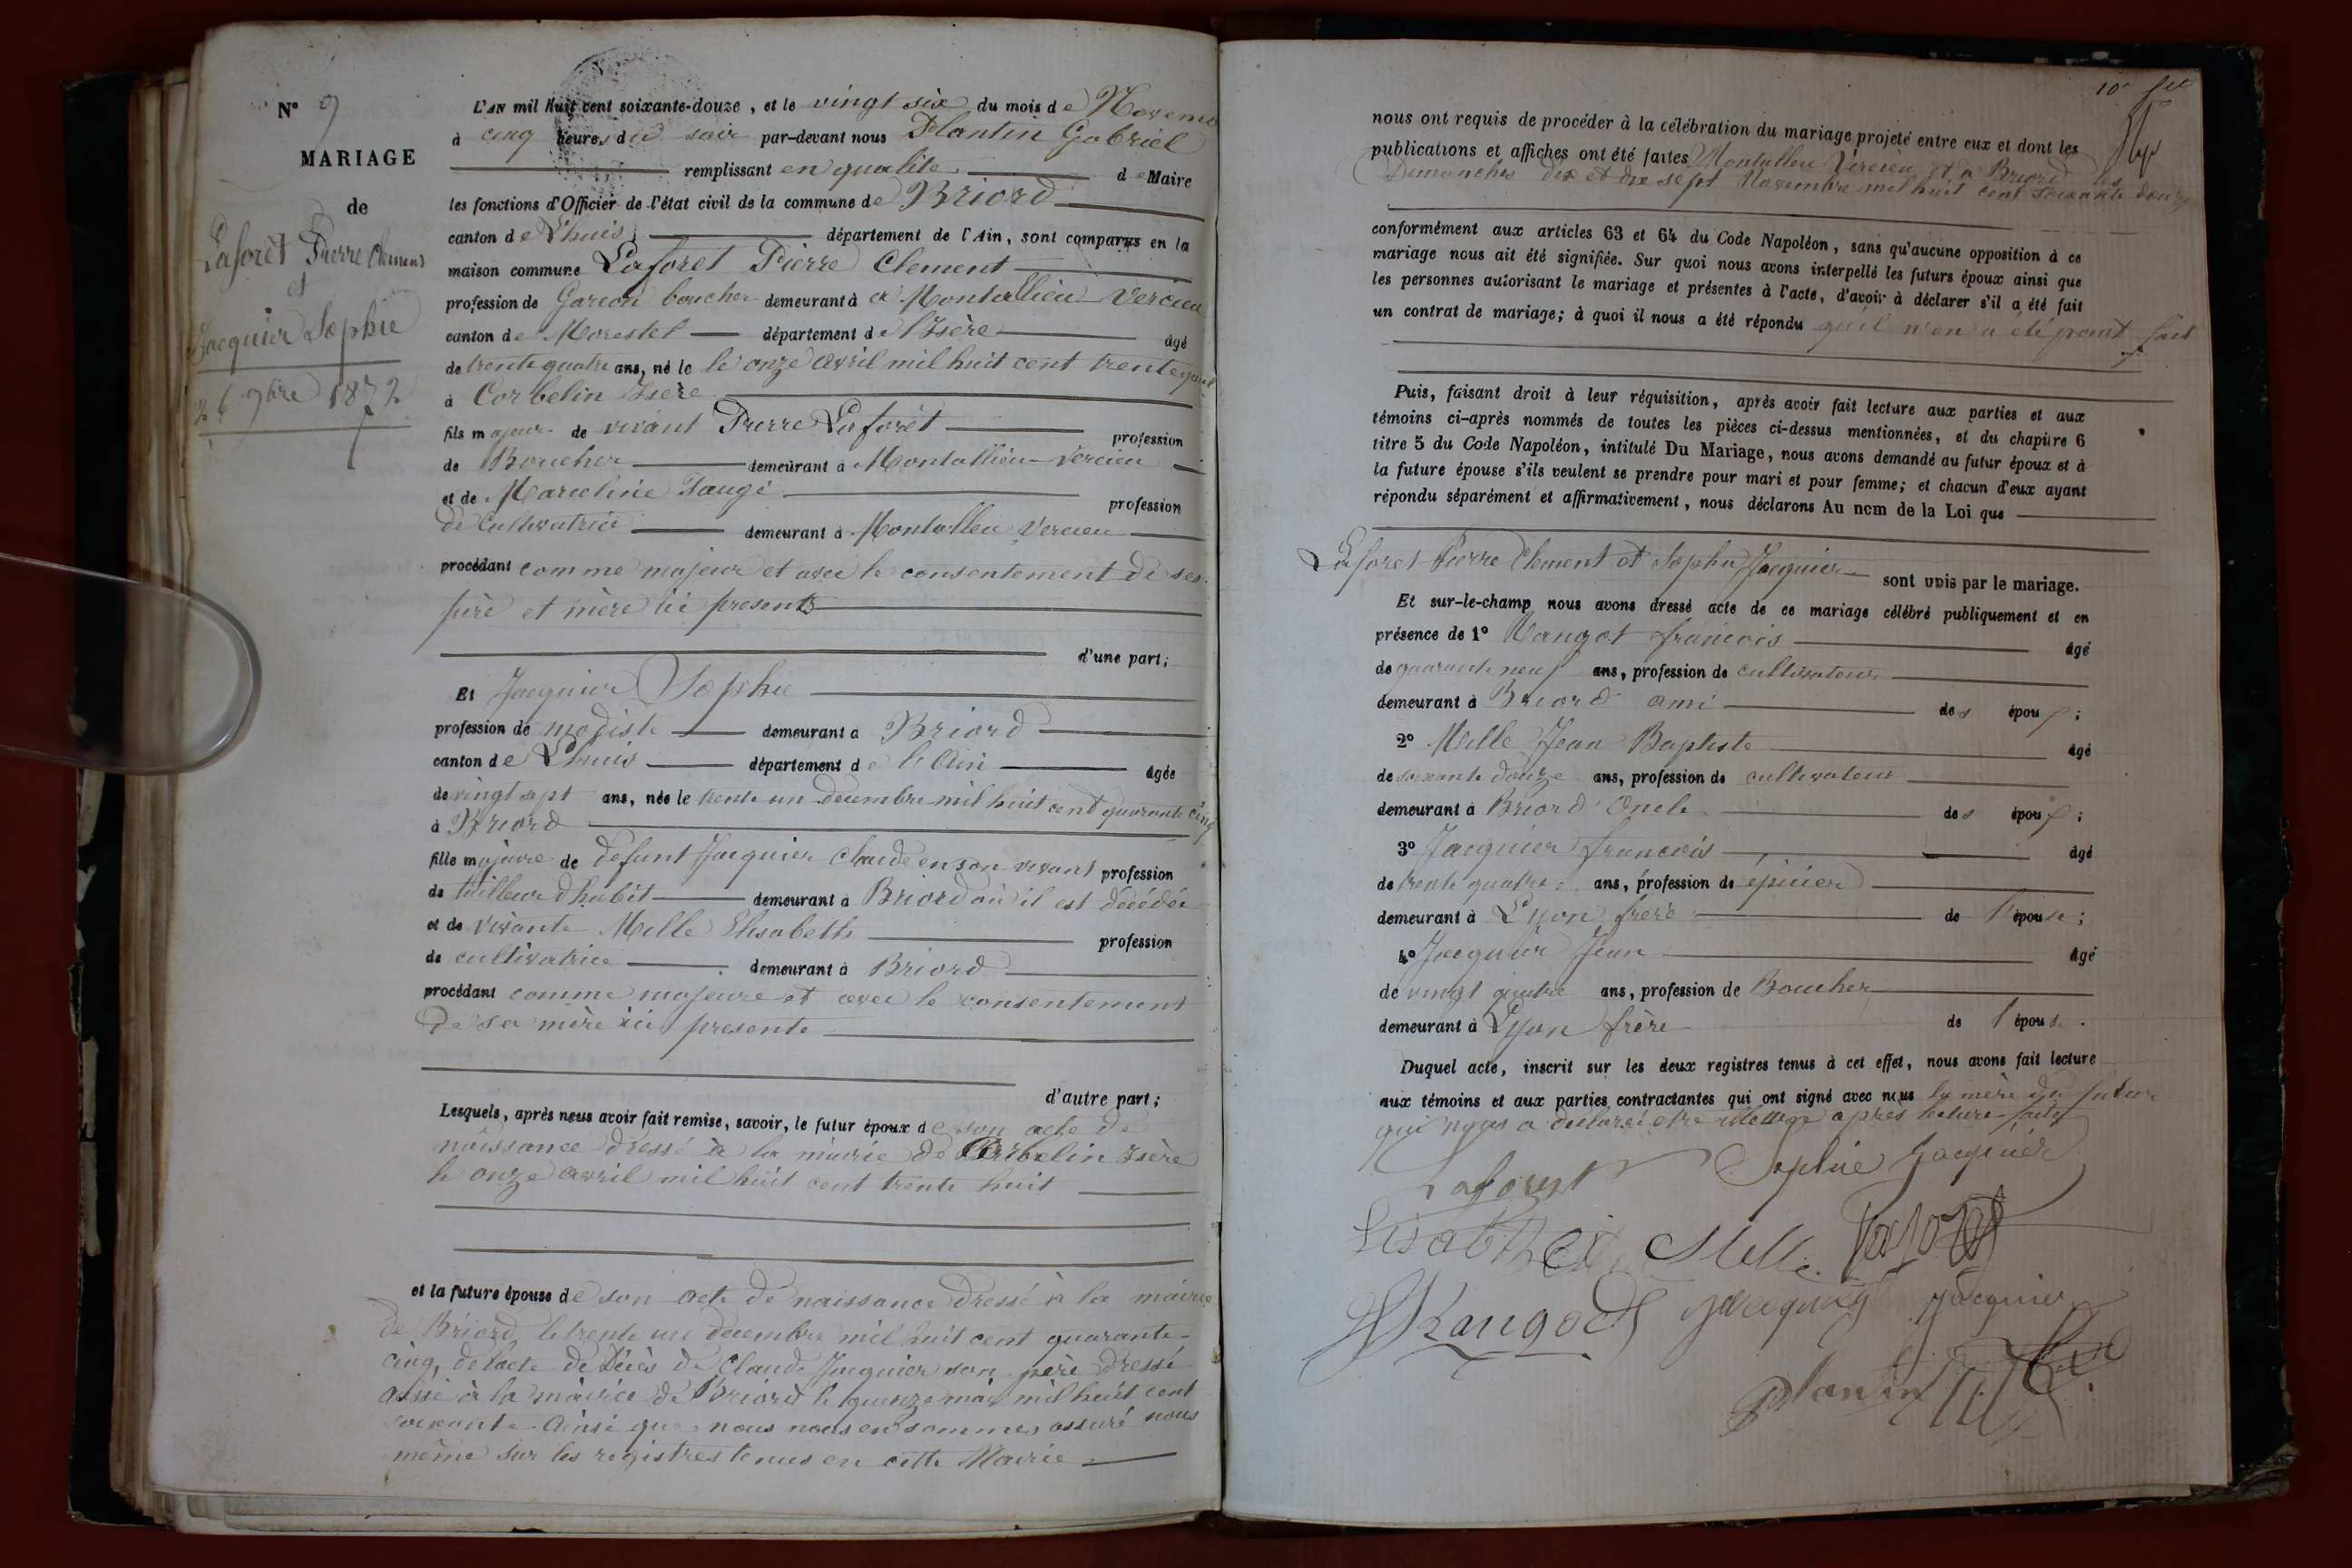 N° 9
MARIAGE
de
Laforêt Pierre Clement
et
Jacquier Sophie
26 9bre 1872
L'AN mil huit cent soixante-douze, et le vingt six du mois de Novem
à cinq heures du soir par-devant nous Plantin Gabriel
remplissant en qualité de Maire
les fonctions d'Officier de l'état civil de la commune de Briord
canton de Lhuis département de l'Ain, sont comparus en la
maison commune Laforet Pierre Clement
profession de Garcon boucher demeurant à à Montallieu Vercieu
canton de Morestel département de l'Isère âgé
de trente quatre ans, né le le onze avril mil huit cent trente
à Corbelin Isère
fils majeur de vivant Pierre Laforêt profession
de Boucher demeurant à Montallieu-Vercieu
et de Marceline Taugé profession
de Cultivatrice demeurant à Montallieu Vercieu
procédant comme majeur et avec le consentement de ses
père et mère ici presents
d'une part;
Et Jacquier Sophie
profession de modiste demeurant à Briord
canton de Lhuis département de l'Ain âgée
de vingt sept ans, née le trente un decembre mil huit cent quarante cinq
à Briord
fille majeure de defunt Jacquier Claude en son vivant profession
de tailleur d'habit demeurant à Briord où il est décédé
et de vivante Melle Elisabeth profession
de cultivatrice demeurant à Briord
procédant comme majeure et avec le consentement
de sa mère ici presente
d'autre part;
Lesquels, après nous avoir fait remise, savoir, le futur époux de son acte de
naissance dressé à la mairie de Corbelin Isère
le onze avril mil huit cent trente huit
et la future épouse de son acte de naissance dressé à la mairie
de Briord le trente un decembre mil huit cent quarante-
cinq, de l'acte de décès de Claude Jacquier son père dressé
aussi à la mairie de Briord le quinze mai mil huit cent
soixante ainsi que nous nous en sommes assuré nous
même sur les registres tenus en cette Mairie
10e
nous ont requis de procéder à la célébration du mariage projeté entre eux et dont les
publications et affiches ont été faites Montallieu Vercieu et à Briord les
Dimanches dix et dix sept Novembre mil huit cent soixante douze
conformément aux articles 63 et 64 du Code Napoléon, sans qu'aucune opposition à ce
mariage nous ait été signifiée. Sur quoi nous avons interpellé les futurs époux ainsi que
les personnes autorisant le mariage et présentes à l'acte, d'avoir à déclarer s'il a été fait
un contrat de mariage; à quoi il nous a été répondu qu'il n'en a été point fait
Puis, faisant droit à leur réquisition, après avoir fait lecture aux parties et aux
témoins ci-après nommés de toutes les pièces ci-dessus mentionnées, et du chapitre 6
titre 5 du Code Napoléon, intitulé Du Mariage, nous avons demandé au futur époux et à
la future épouse s'ils veulent se prendre pour mari et pour femme; et chacun d'eux ayant
répondu séparément et affirmativement, nous déclarons Au nom de la Loi que
Laforet Pierre Clement et Sophie Jacquier sont unis par le mariage.
Et sur-le-champ nous avons dressé acte de ce mariage célébré publiquement et en
présence de 1° Rangot francois âgé
de quarante neuf ans, profession de cultivateur
demeurant à Briord ami des époux;
2° Melle Jean Baptiste âgé
de soixante douze ans, profession de cultivateur
demeurant à Briord Oncle des époux;
3° Jacquier francois âgé
de trente quatre ans, profession de épicier
demeurant à Lyon frere de l'épouse;
4° Jacquier Jean âgé
de vingt quatre ans, profession de Boucher
demeurant à Lyon frère de l'épouse.
Duquel acte, inscrit sur les deux registres tenus à cet effet, nous avons fait lecture
aux témoins et aux parties contractantes qui ont signé avec nous la mère du future
qui nous a déclaré etre illettrée après lecture faite
Laforest Sophie Jacquier
Lisabthe Melle Laforet
Rangod Jacquier Jacquier
Plantin